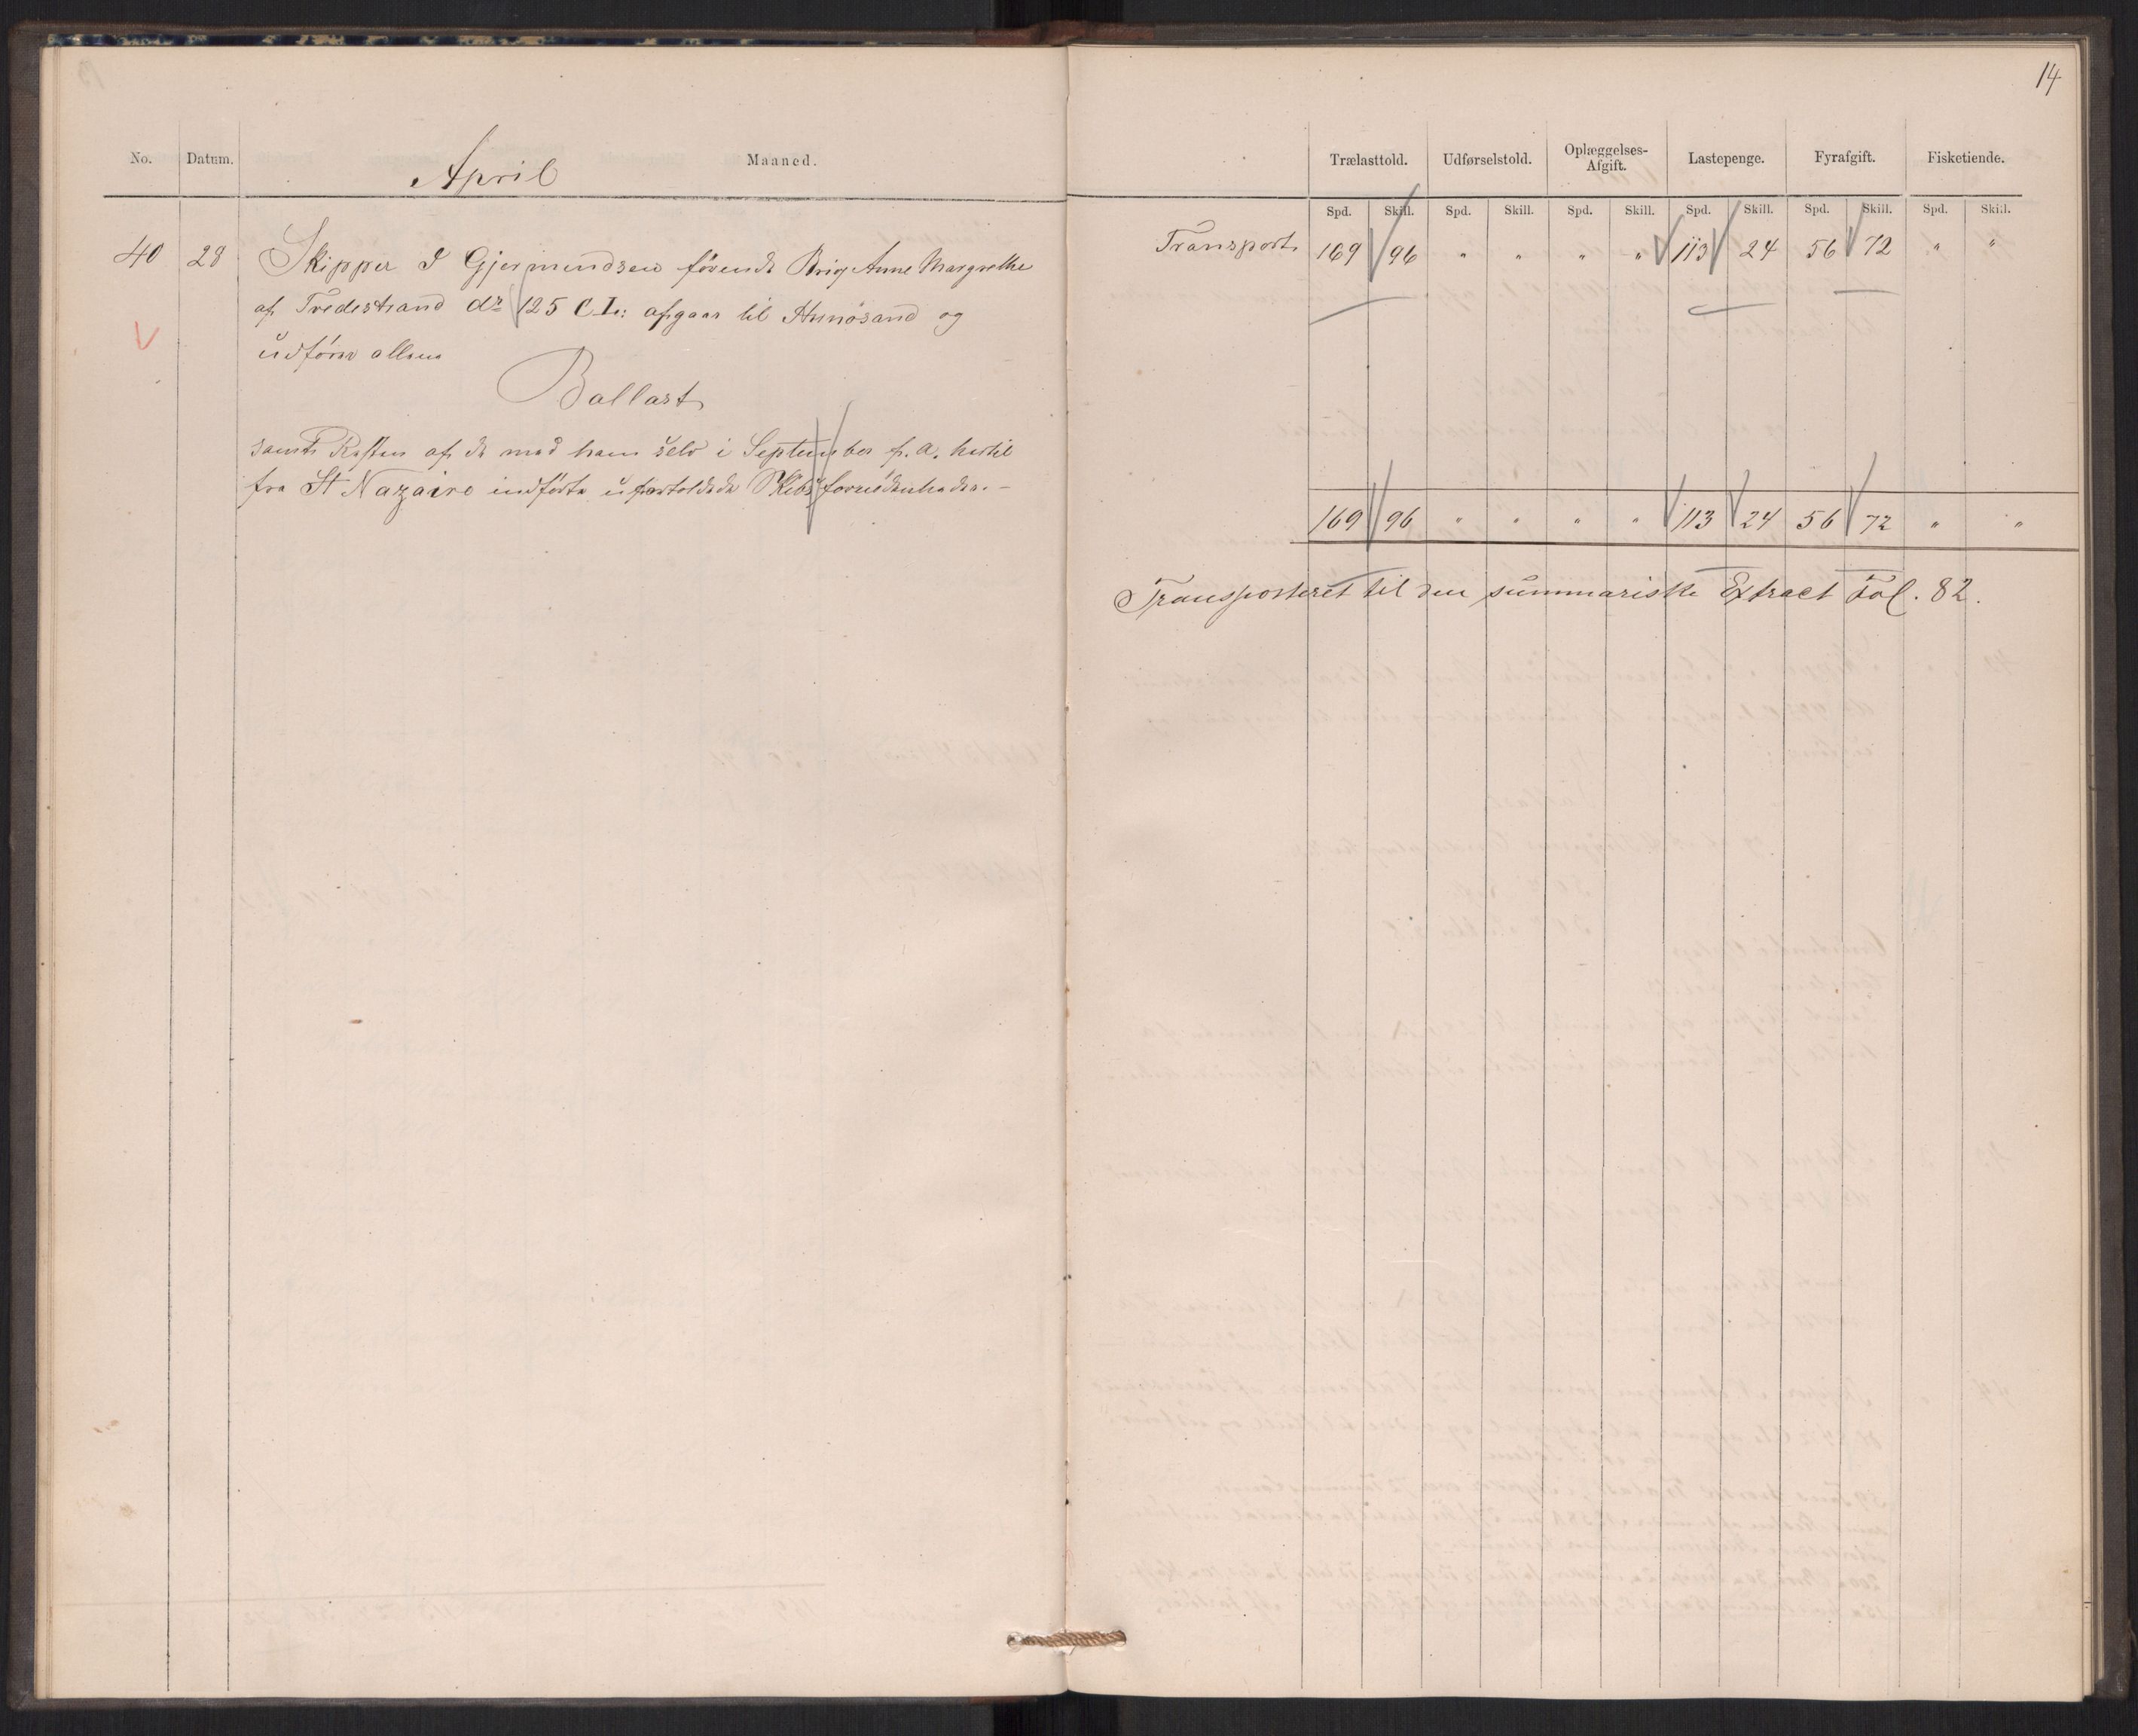 14
No. Datum. April Maaned.
Trælasttold. Udførselstold. Oplæggelses-Afgift. Lastepenge. Fyrafgift. Fisketiende.
Spd. Skill. Spd. Skill. Spd. Skill. Spd. Skill. Spd. Skill. Spd. Skill.
Transport 169 96 " " " " 113 24 56 72 " "
40 28 Skipper I Gjermundsen førende Brig Anne Margrethe
af Tvedestrand dr 125 C.L: afgaar til Hernösand og
udfører allene
Ballast
samt Resten af de med ham selv i September f. a. hertil
fra St Nazaire indførte ufortoldede Skibsfornødenheder. -
169 96 " " " " 113 24 56 72 " "
Transporteret til den summariske Extract Fol. 82.